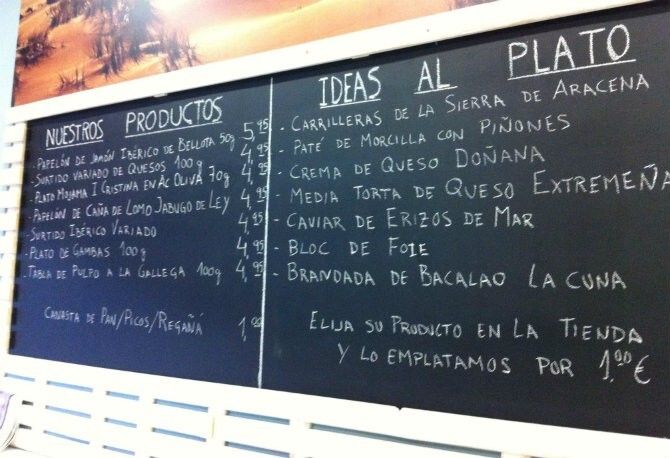 NUESTROS PRODUCTOS
- PAPELÓN DE JAMÓN IBÉRICO DE BELLOTA 50g 5,95
- SURTIDO VARIADO DE QUESOS 100g 4,95
- PLATO MOJAMA I. CRISTINA EN AC OLIVA 70g 4,95
- PAPELÓN DE CAÑA DE LOMO JABUGO DE LEY 4,95
- SURTIDO IBÉRICO VARIADO 4,95
- PLATO DE GAMBAS 100g 4,95
- TABLA DE PULPO A LA GALLEGA 100g 4,95
CANASTA DE PAN/PICOS/REGAÑÁ 1,00
IDEAS AL PLATO
- CARRILLERAS DE LA SIERRA DE ARACENA
- PATÉ DE MORCILLA CON PIÑONES
- CREMA DE QUESO DOÑANA
- MEDIA TORTA DE QUESO EXTREMEÑA
- CAVIAR DE ERIZOS DE MAR
- BLOC DE FOIE
- BRANDADA DE BACALAO LA CUNA
ELIJA SU PRODUCTO EN LA TIENDA
Y LO EMPLATAMOS POR 1,00 €